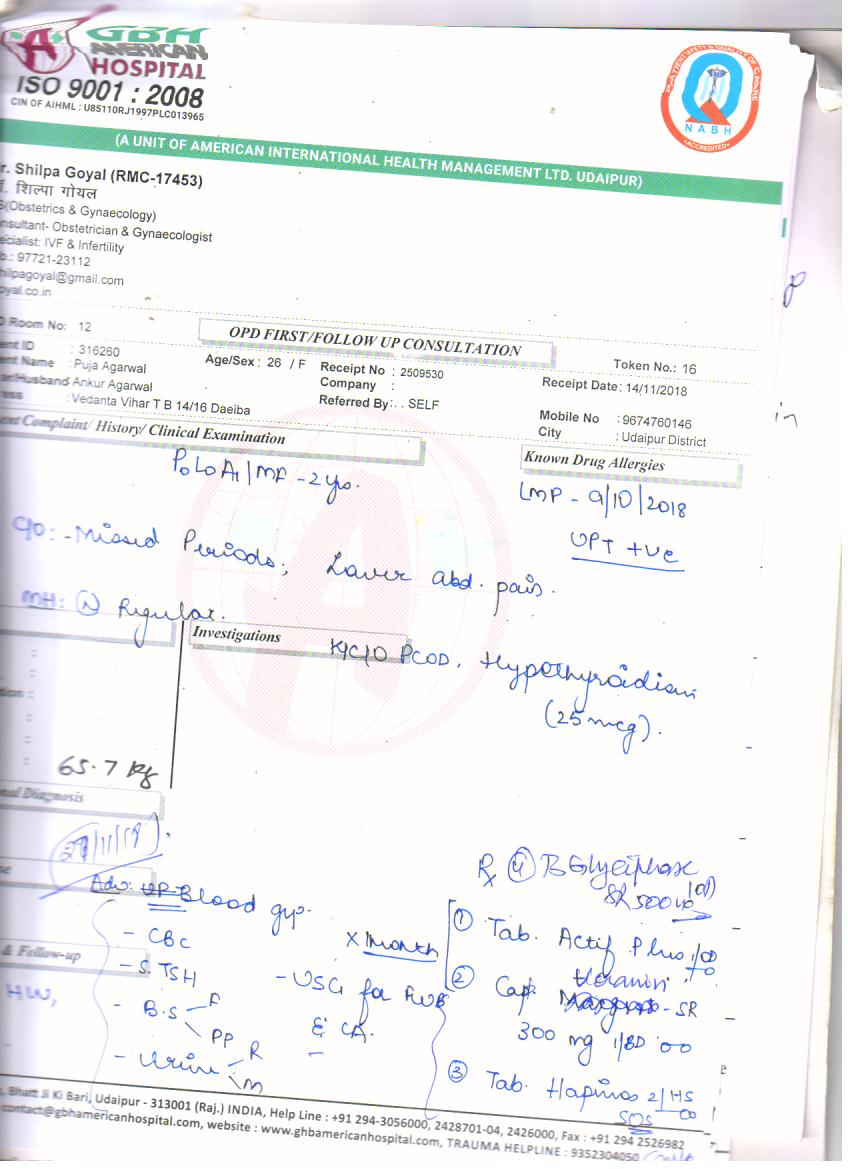 GBH
AMERICAN
HOSPITAL
ISO 9001 : 2008
CIN OF AIHML : U85110RJ1997PLC013965
PATIENT SAFETY & QUALITY OF CARE
NABH
ACCREDITED
(A UNIT OF AMERICAN INTERNATIONAL HEALTH MANAGEMENT LTD. UDAIPUR)
r. Shilpa Goyal (RMC-17453)
शिल्पा गोयल
S(Obstetrics & Gynaecology)
nsultant- Obstetrician & Gynaecologist
ecialist: IVF & Infertility
b.: 97721-23112
hilpagoyal@gmail.com
oyal.co.in
D Room No: 12
OPD FIRST/FOLLOW UP CONSULTATION
Token No.: 16
ent ID : 316260
Age/Sex : 26 / F
Receipt No : 2509530
Receipt Date: 14/11/2018
ent Name : Puja Agarwal
Company :
er/Husband Ankur Agarwal
Referred By: . . SELF
Mobile No : 9674760146
ess : Vedanta Vihar T B 14/16 Daeiba
City : Udaipur District
ent Complaint/ History/ Clinical Examination
Known Drug Allergies
P0L0A1 / MF - 2 yrs.
LMP - 9/10/2018
UPT +ve
C/O: - Missed Periods; Lower abd. pain.
MH: (N) Regular.
Investigations
K/C/O PCOD, Hypothyroidism
(25mcg).
65.7 kg
nal Diagnosis
Rx (4) T. Glyciphase
SR 500 10
Adv: Blood gp.
(1) Tab. Actif Plus 1/OD
- CBC
x 1 month
& Follow-up
- S. TSH
- USG for FWB
(2) Cap. - SR
HW,
- B.S F
PP
& CA.
300 mg 1/BD
- Urine R
M
(3) Tab. Hapinos 2/HS
SOS
, Bhatt Ji Ki Bari, Udaipur - 313001 (Raj.) INDIA, Help Line : +91 294-3056000, 2428701-04, 2426000, Fax : +91 294 2526982
contact@gbhamericanhospital.com, website : www.ghbamericanhospital.com, TRAUMA HELPLINE : 9352304050